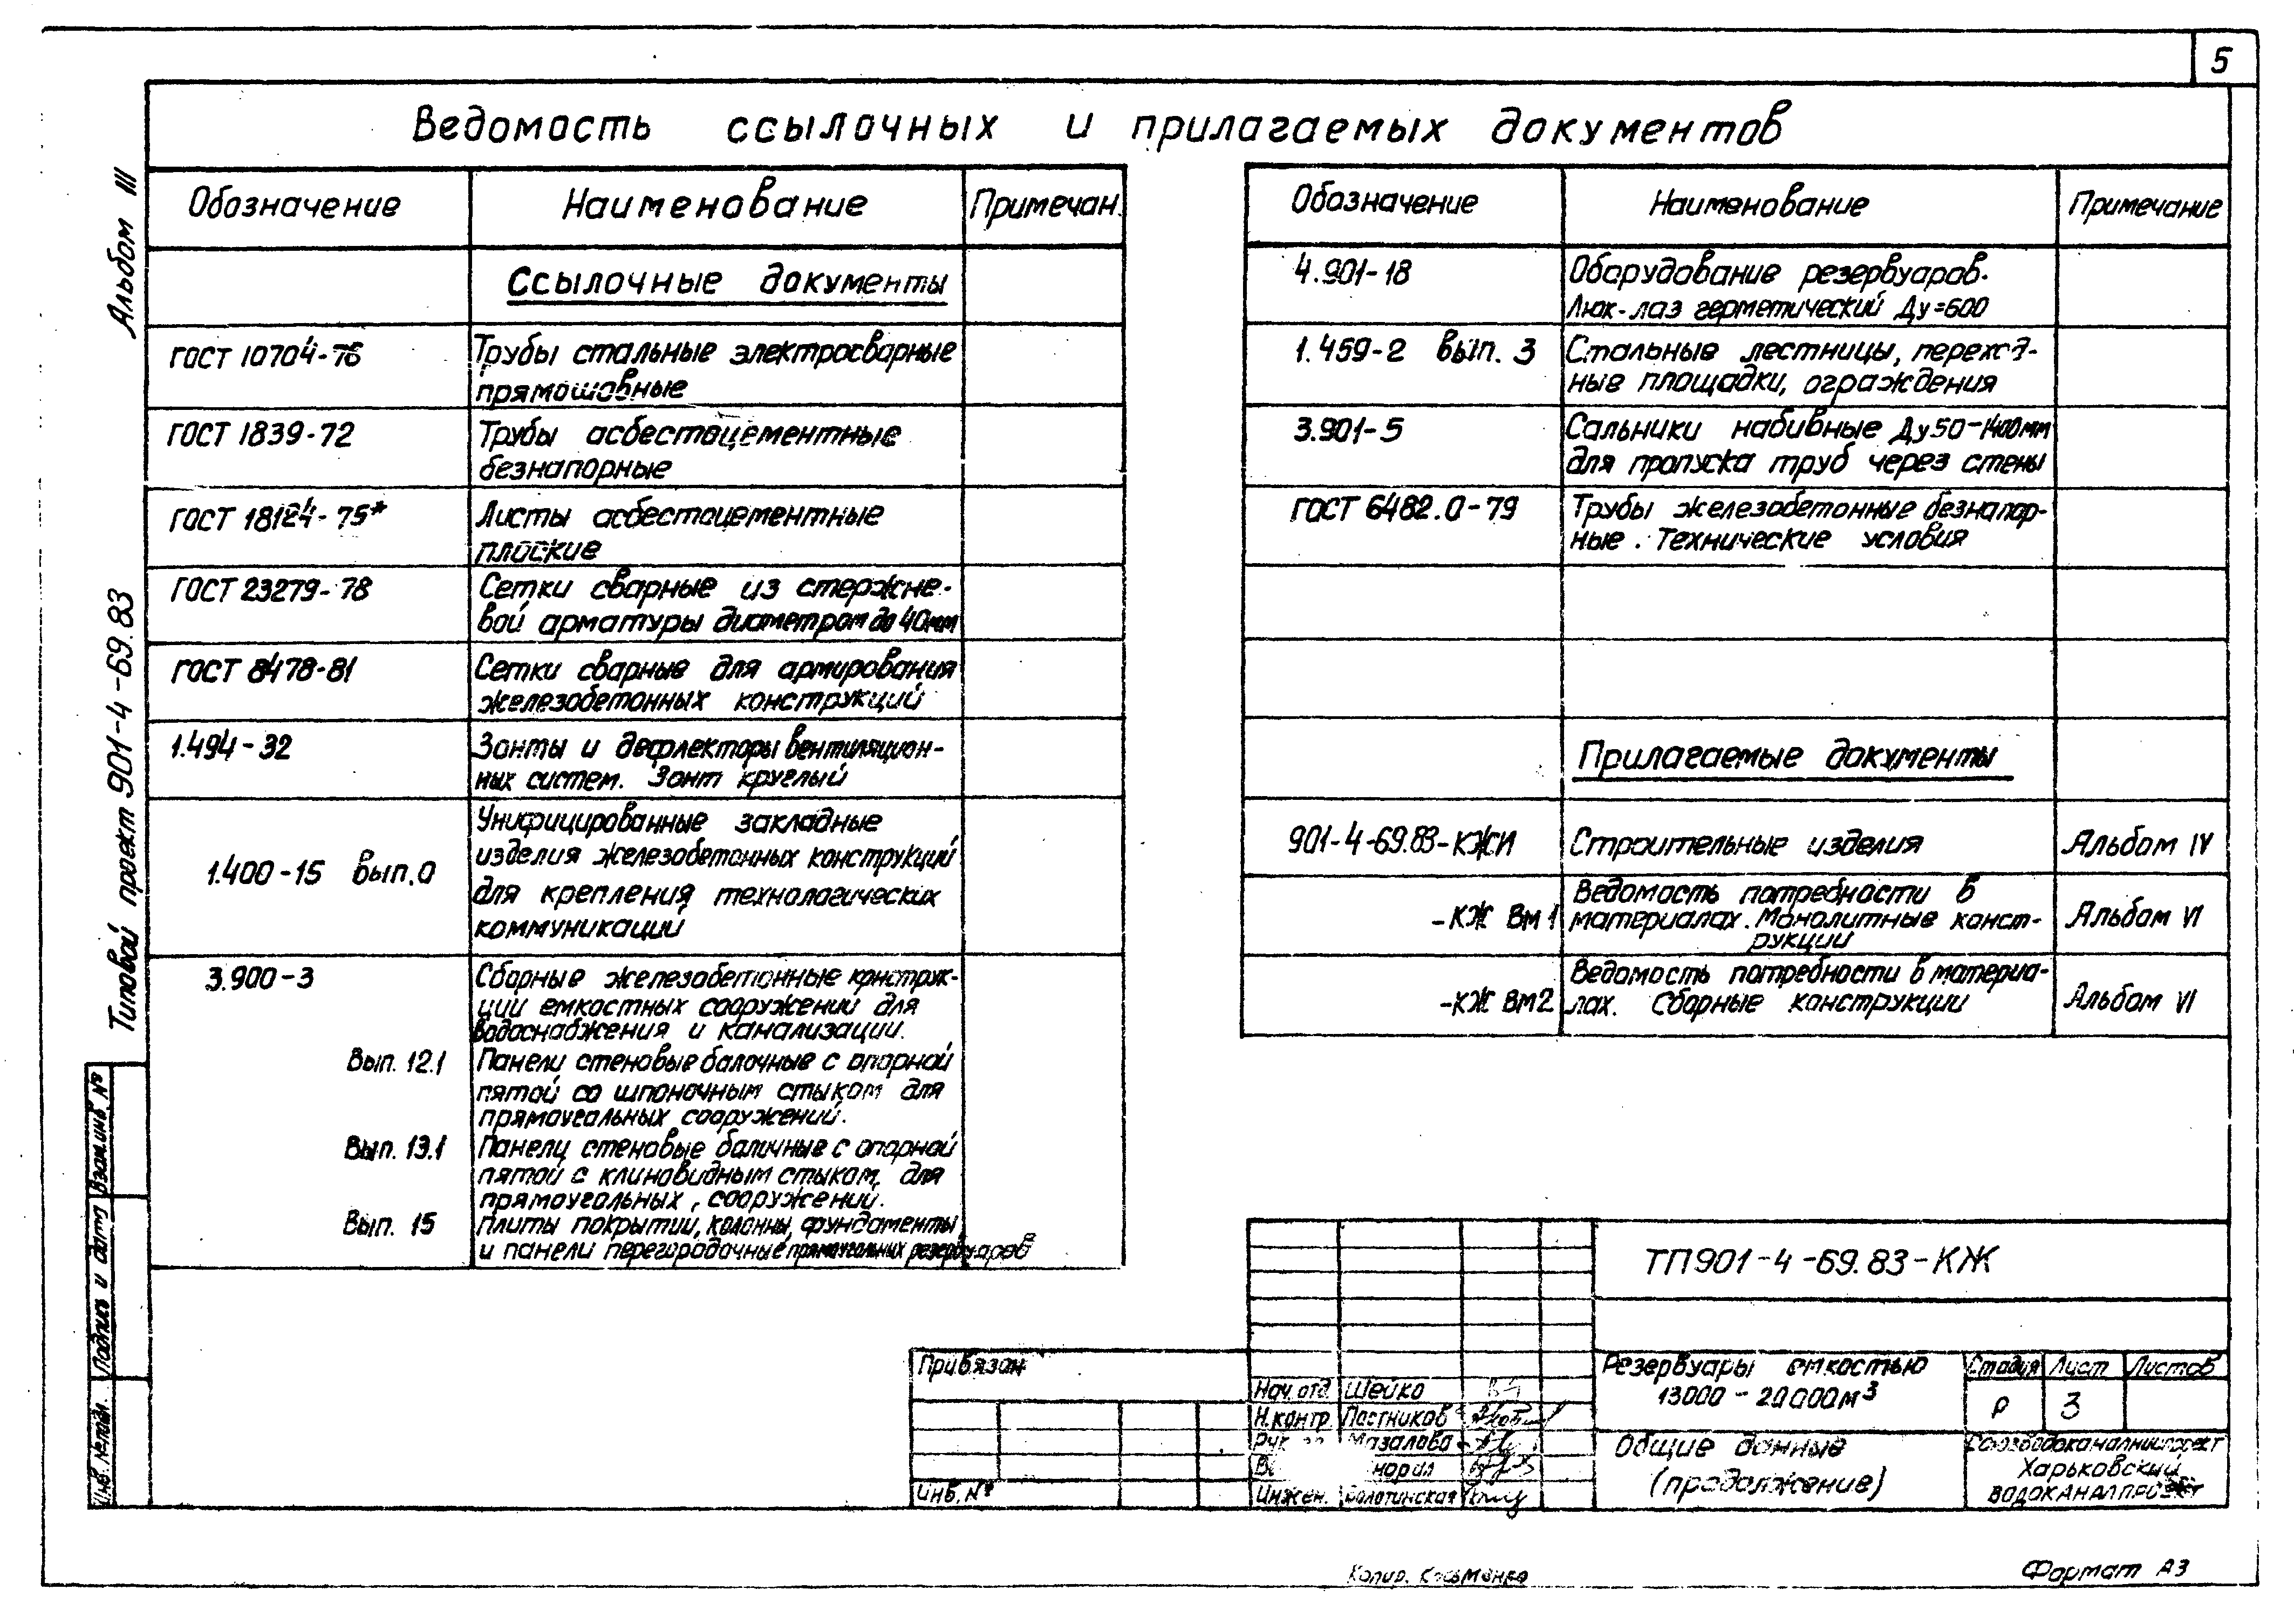 5
Ведомость ссылочных и прилагаемых документов
Альбом III
Типовой проект 901-4-69.83
Обозначение Наименование Примечан.
Ссылочные документы
ГОСТ 10704-76 Трубы стальные электросварные
прямошовные
ГОСТ 1839-72 Трубы асбестоцементные
безнапорные
ГОСТ 18124-75* Листы асбестоцементные
плоские
ГОСТ 23279-78 Сетки сварные из стержне-
вой арматуры диаметром до 40мм
ГОСТ 8478-81 Сетки сварные для армирования
железобетонных конструкций
1.494-32 Зонты и дефлекторы вентиляцион-
ных систем. Зонт круглый
Унифицированные закладные
изделия железобетонных конструкций
1.400-15 Вып.0 для крепления технологических
коммуникаций
3.900-3 Сборные железобетонные конструк-
ции емкостных сооружений для
водоснабжения и канализации.
Вып. 12.1 Панели стеновые балочные с опорной
пятой со шпоночным стыком для
прямоугольных сооружений.
Вып. 13.1 Панели стеновые балочные с опорной
пятой с клиновидным стыком, для
прямоугольных, сооружений.
Вып. 15 Плиты покрытий, колонны, фундаменты
и панели перегородочные прямоугольных резервуаров
Обозначение Наименование Примечание
4.901-18 Оборудование резервуаров.
Люк-лаз герметический Ду=600
1.459-2 вып. 3 Стальные лестницы, переход-
ные площадки, ограждения
3.901-5 Сальники набивные Ду50-1400мм
для пропуска труб через стены
ГОСТ 6482.0-79 Трубы железобетонные безнапор-
ные. Технические условия
Прилагаемые документы
901-4-69.83-КЖИ Строительные изделия Альбом IV
Ведомость потребности в
-КЖ ВМ1 материалах. Монолитные конст- Альбом VI
рукции
Ведомость потребности в материа-
-КЖ ВМ2 лах. Сборные конструкции Альбом VI
Взам.инв. №
Подпись и дата
Инв. № подл.
ТП901-4-69.83-КЖ
Привязан
Инв. №
Нач. отд. Шейко
Н.контр. Постников
Рук. Мазалова
Инжен. Болотинская
Резервуары емкостью
13000-20000м³
Стадия Лист Листов
Р 3
Общие данные
(продолжение)
Союзводоканалниипроект
Харьковский
Водоканалпроект
Копир. Косьменко
Формат А3